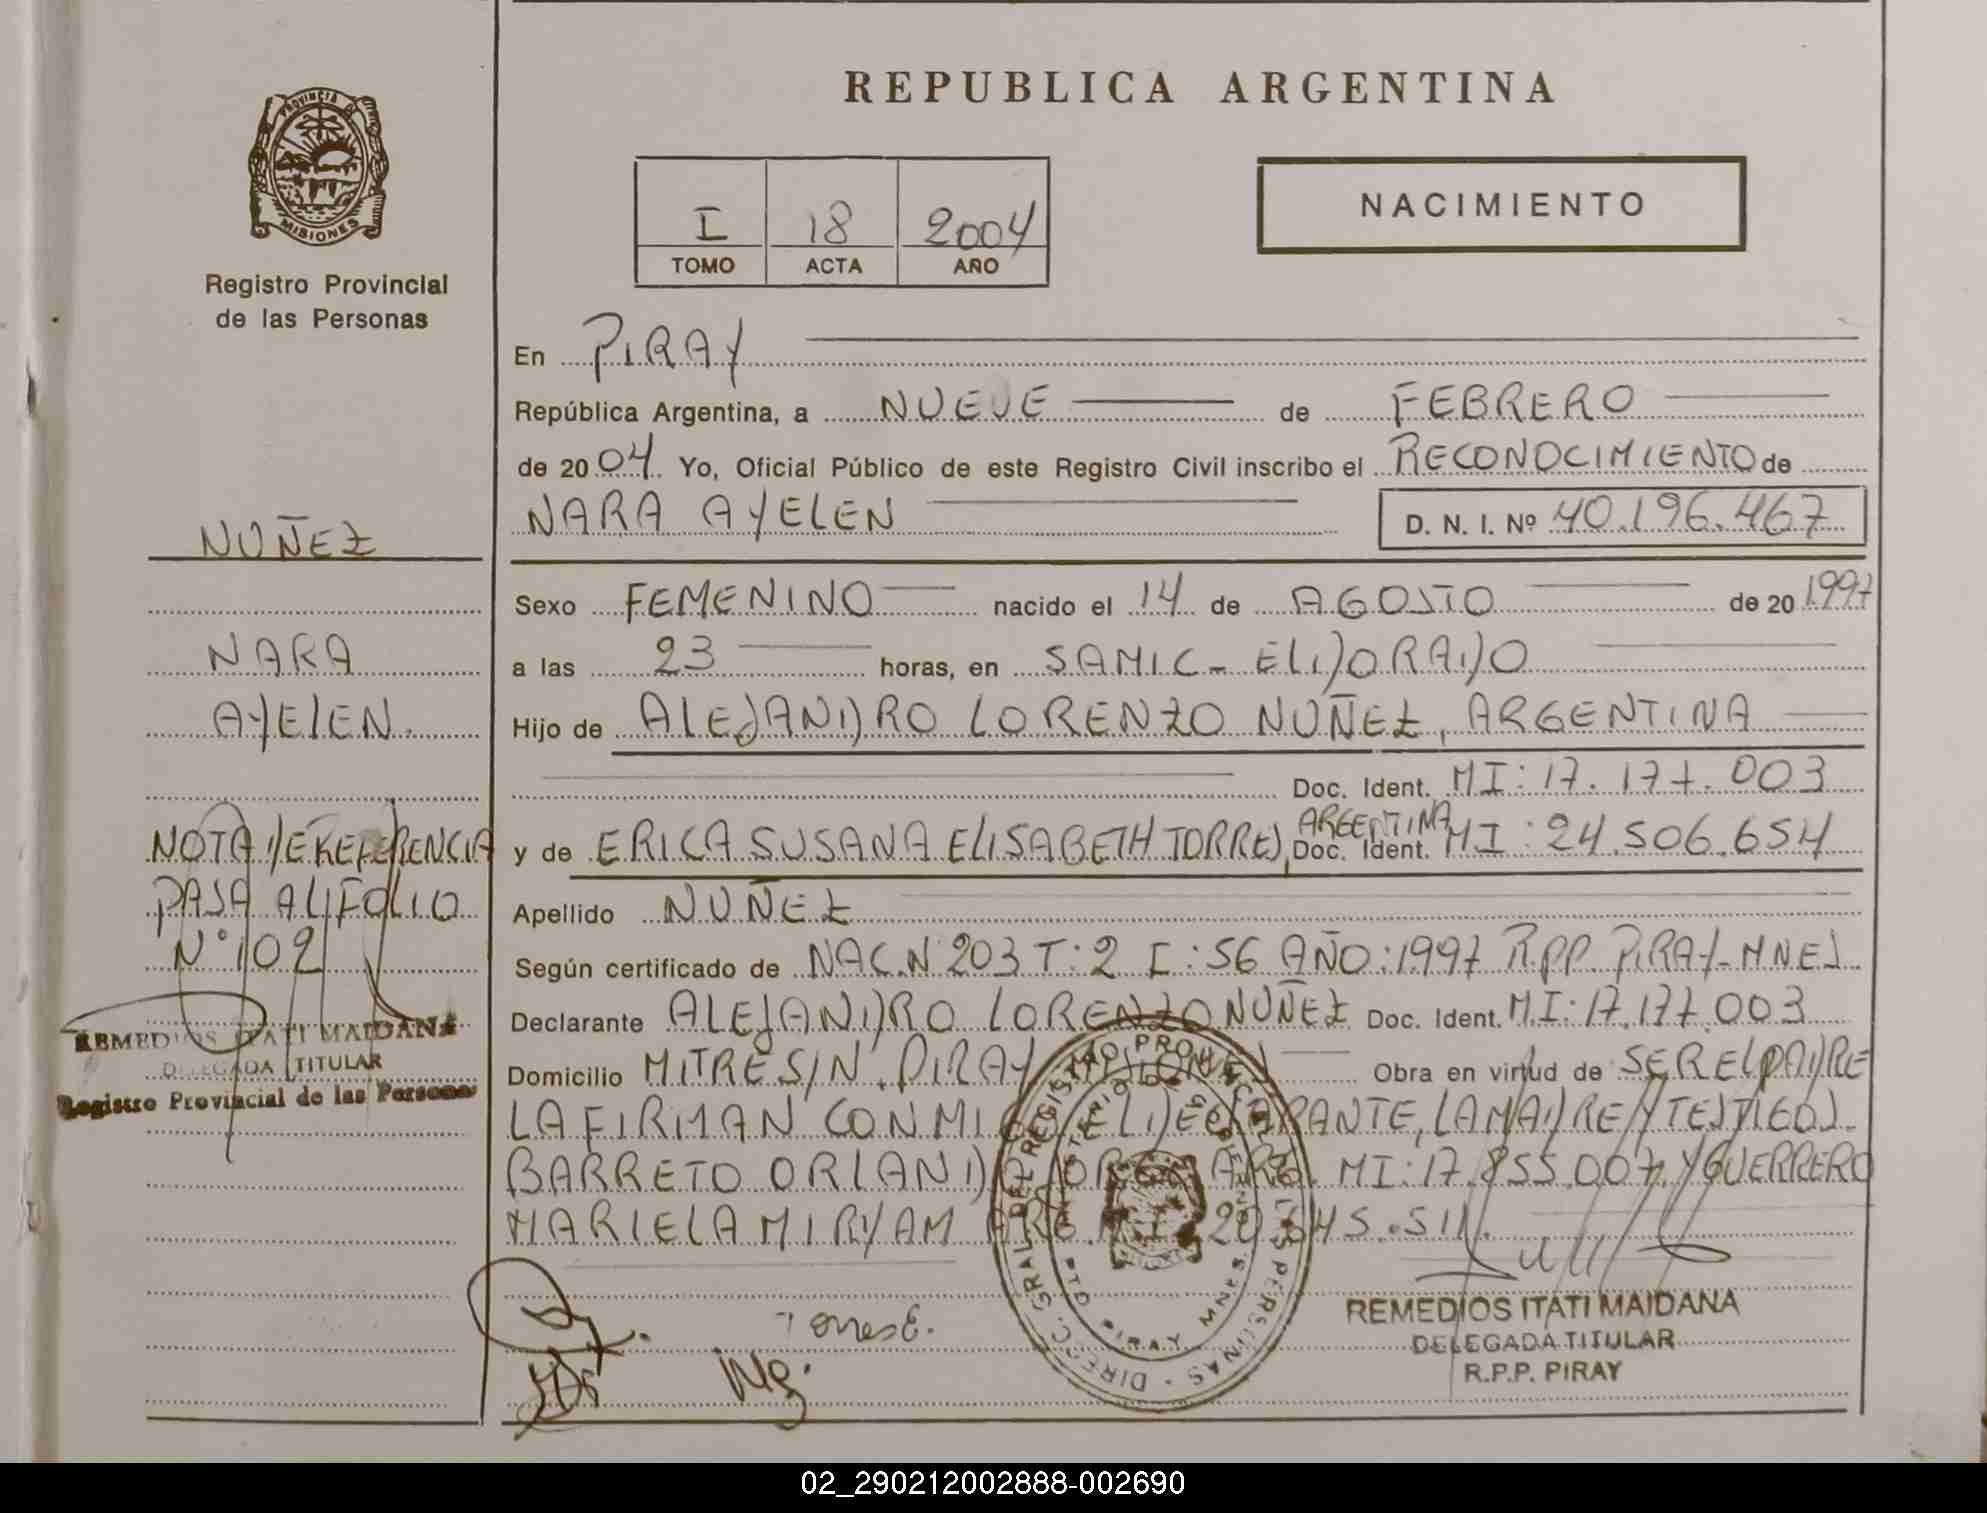 REPUBLICA ARGENTINA
PROVINCIA DE
MISIONES
Registro Provincial
de las Personas
NACIMIENTO
I 18 2004
TOMO ACTA AÑO
En PIRAY
República Argentina, a NUEVE de FEBRERO
de 2004 Yo, Oficial Público de este Registro Civil inscribo el RECONOCIMIENTO de
NARA AYELEN D. N. I. Nº 40.196.467
NUÑEZ
NARA
AYELEN.
Sexo FEMENINO nacido el 14 de AGOSTO de 20 1997
a las 23 horas, en SAMIC- ELDORADO
Hijo de ALEJANDRO LORENZO NUÑEZ, ARGENTINA
Doc. Ident. MI: 17.177.003
y de ERICA SUSANA ELISABETH TORRES, ARGENTINA Doc. Ident. MI: 24.506.654
Apellido NUÑEZ
Según certificado de NAC.Nº 203 T: 2 F: 56 AÑO: 1997 R.PP. PIRAY-MNES
Declarante ALEJANDRO LORENZO NUÑEZ Doc. Ident. M.I: 17.177.003
Domicilio MITRE S/N. PIRAY MISIONES Obra en virtud de SER EL PADRE
LA FIRMAN CONMIGO EL DECLARANTE, LA MADRE Y TESTIGOS.
BARRETO ORLANDO ARG. MI: 17.855.007 Y GUERRERO
MARIELA MIRYAM ARG. MI: 20.645.511.
NOTA DE REFERENCIA
PASA AL FOLIO
Nº 102
REMEDIOS ITATI MAIDANA
DELEGADA TITULAR
Registro Provincial de las Personas
Torres E.
DIRECC. GRAL. DEL REGISTRO PROVINCIAL DE LAS PERSONAS
PIRAY MNES.
REMEDIOS ITATI MAIDANA
DELEGADA TITULAR
R.P.P. PIRAY
02_290212002888-002690